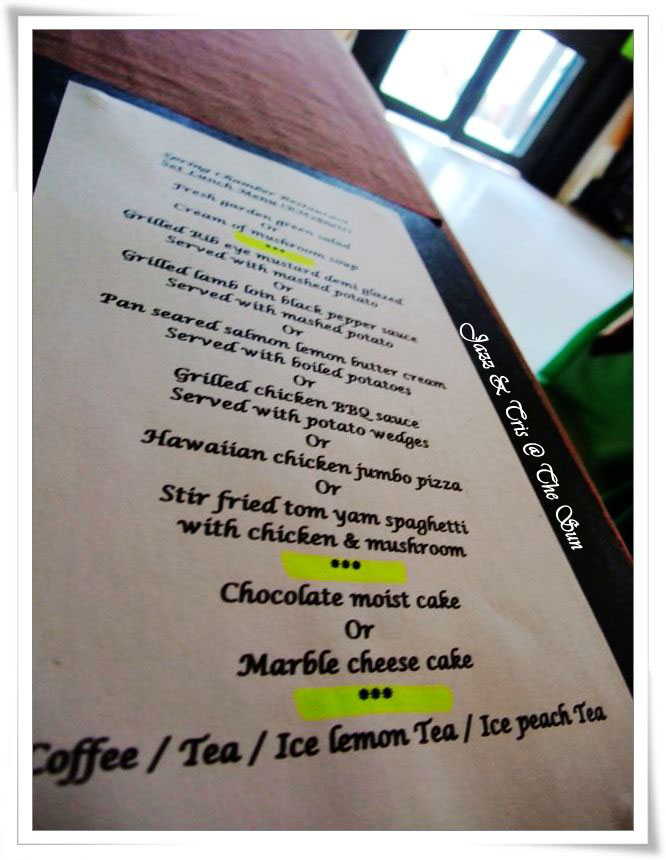 Spring Chamber Restaurant
Set Lunch Menu
Fresh garden green salad
Or
Cream of mushroom soup
***
Grilled Rib eye mustard demi glazed
Served with mashed potato
Or
Grilled lamb loin black pepper sauce
Served with mashed potato
Or
Pan seared salmon lemon butter cream
Served with boiled potatoes
Or
Grilled chicken BBQ sauce
Served with potato wedges
Or
Hawaiian chicken jumbo pizza
Or
Stir fried tom yam spaghetti
with chicken & mushroom
***
Chocolate moist cake
Or
Marble cheese cake
***
Coffee / Tea / Ice lemon Tea / Ice peach Tea
Jazz & Tris @ The Sun